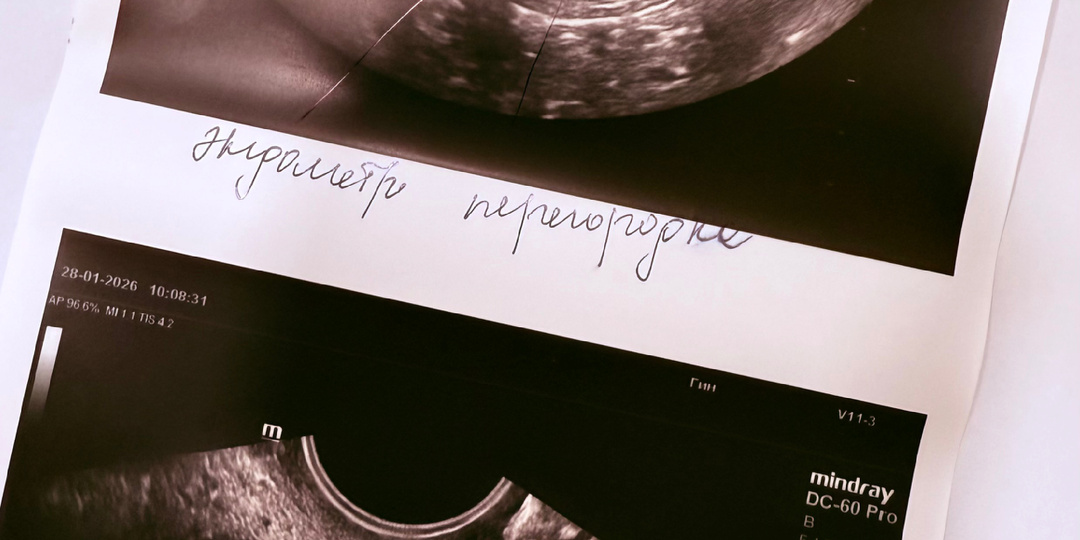 Эндометр перегородка
28-01-2026 10:08:31
AP 96.6% MI 1.1 TIS 4.2
Гин
V11-3
m
mindray
DC-60 Pro
B